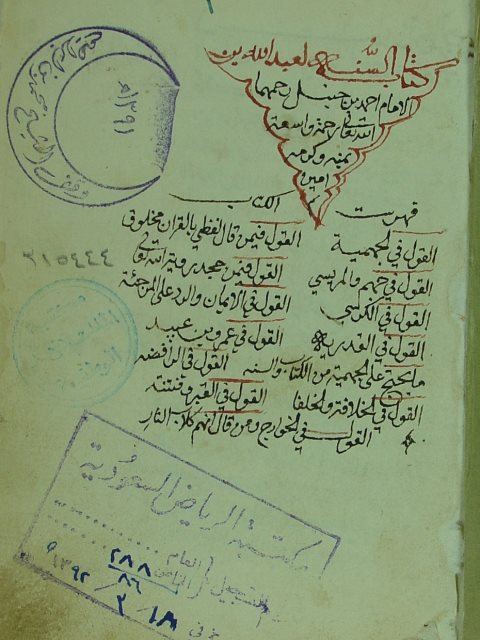 كتاب السنة لعبد الله بن
الامام احمد بن حنبل رحمهما
الله تعالى رحمة واسعة
بمنه وكرمه
امين
م
فهرست الكتاب
القول في الجهمية القول فيمن قال لفظي بالقران مخلوق
القول في جهم والمريسي القول فيمن جحد روية الله تعالى
القول في الكرسي القول في الايمان والرد على المرجئة
القول في القدرية القول في عمرو بن عبيد
ما يحتج على الجهمية من الكتاب والسنه القول في الرافضه
القول في الخلافة والخلفا القول في القبر وفتنته
القول في الخوارج ومن قال انهم كلاب النار
١٣٩١هـ
٢١٥٤٤٤
مكتبة الرياض السعودية
العام
التسجيل الخاص
٢٨٨
٨٦
في ١٨ / ٣ / ١٣٩٢ ه